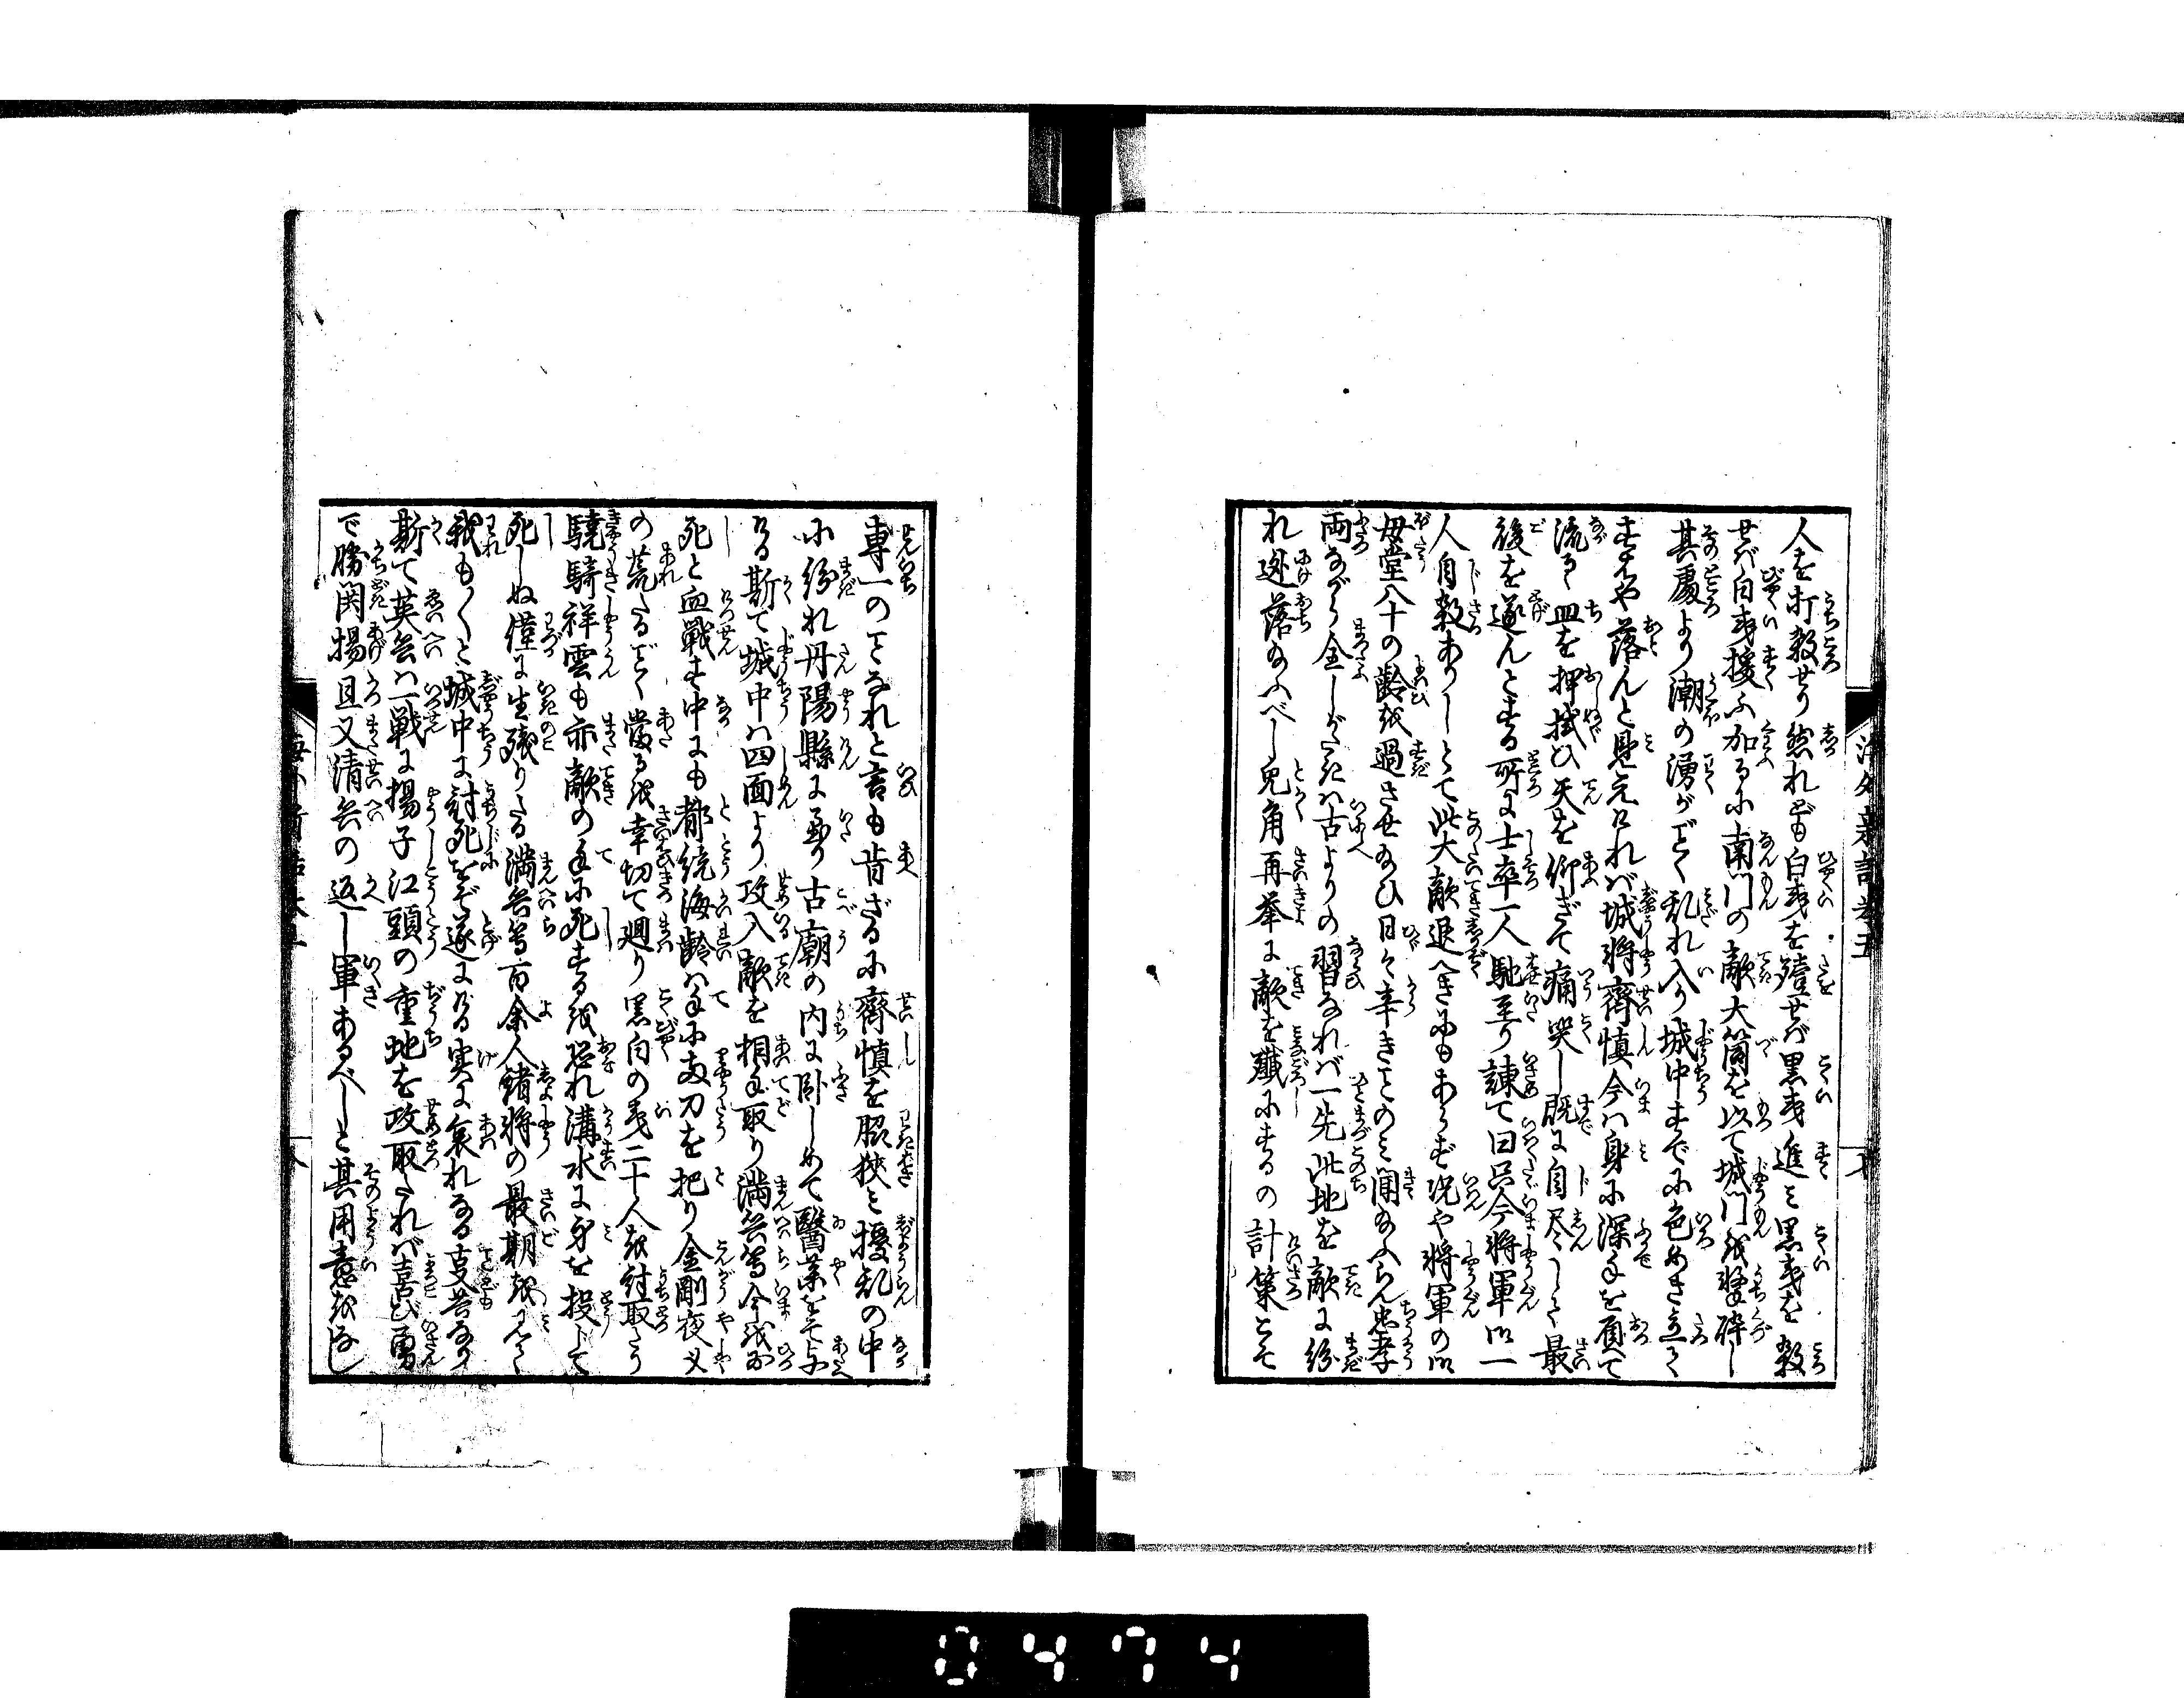 人を打殺せり然れども白夷を殪せば黒夷進み黒夷を殺
せば白夷援ふ加るに南門の敵大筒を以て城門を撃碎し
其處より潮の湧がごとく乱れ入り城中すでに色めき立て
すはや落んと見えければ城将齊慎今は身に深手を負て
流るゝ血を押拭ひ天を仰ぎて痛哭し既に自尽して最
後を遂んとする所に士卒一人馳至り諌て曰只今将軍御一
人自殺ありしとて此大敵退くべきにもあらず况や将軍の御
母堂八十の齢を過させ給ひ日々辛きことのみ聞給ふらん忠孝
両ながら全しがたきは古よりの習なれば一先此地を敵に紛
れ迯落給ふべし兎角再挙に敵を殲にするの計策こそ
専一のことなれと言も肯ざるに齊慎を脇狭み擾乱の中
に紛れ丹陽縣に到り古廟の内に卧しめて醫薬をぞ与
ける斯て城中は四面より攻入敵を相手取り満兵等今を必
死と血戰す中にも都統海齢は手に両刀を把り金剛夜叉
の荒たるごとく當るを幸切て廻り黒白の夷二十人を討取たり
驍騎祥雲も亦敵の手に死するを恐れ溝水に身を投じて
死しぬ僅に生残りたる満兵等百余人諸将の最期を見て
我も〳〵と城中に討死をぞ遂にける実に哀れなる事共なり
斯て英兵は一戦に揚子江頭の重地を攻取たれば喜び勇
で勝閧揚且又清兵の返し軍あるべしと其用意をなし
海外新話巻五
八